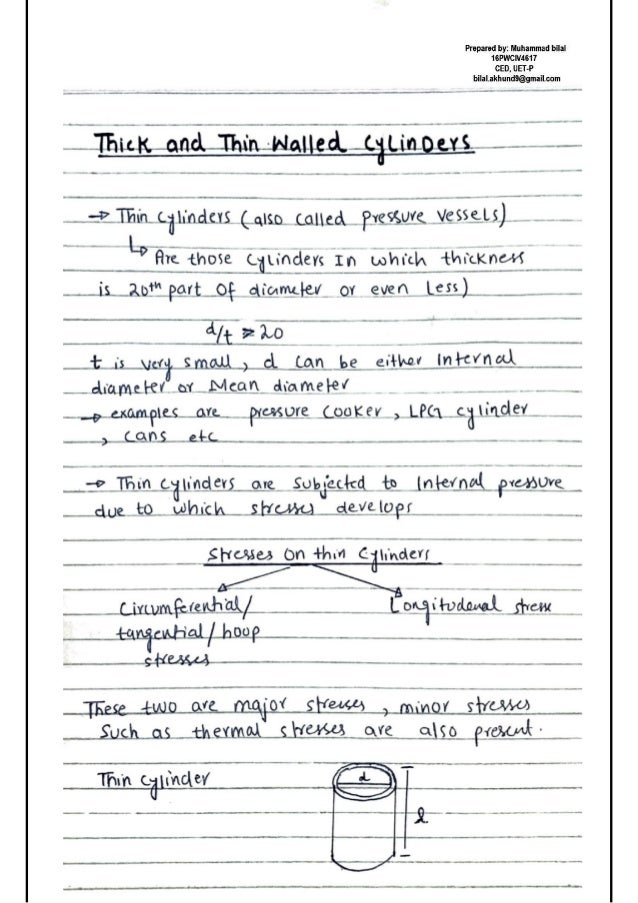 Prepared by: Muhammad bilal
16PWCIV4617
CED, UET-P
bilal.akhund9@gmail.com
Thick and Thin Walled Cylinders
→ Thin cylinders (also called pressure vessels)
↳ Are those cylinders In which thickness
is 20th part of diameter or even Less)
d/t ≥ 20
t is very small, d can be either internal
diameter or Mean diameter
→ examples are pressure cooker, LPG cylinder
, cans etc
→ Thin cylinders are subjected to Internal pressure
due to which stresses develops
Stresses on thin cylinders
Circumferential/
tangential/hoop
stresses
Longitudenal stress
These two are major stresses, minor stresses
Such as thermal stresses are also present.
Thin cylinder
d
l